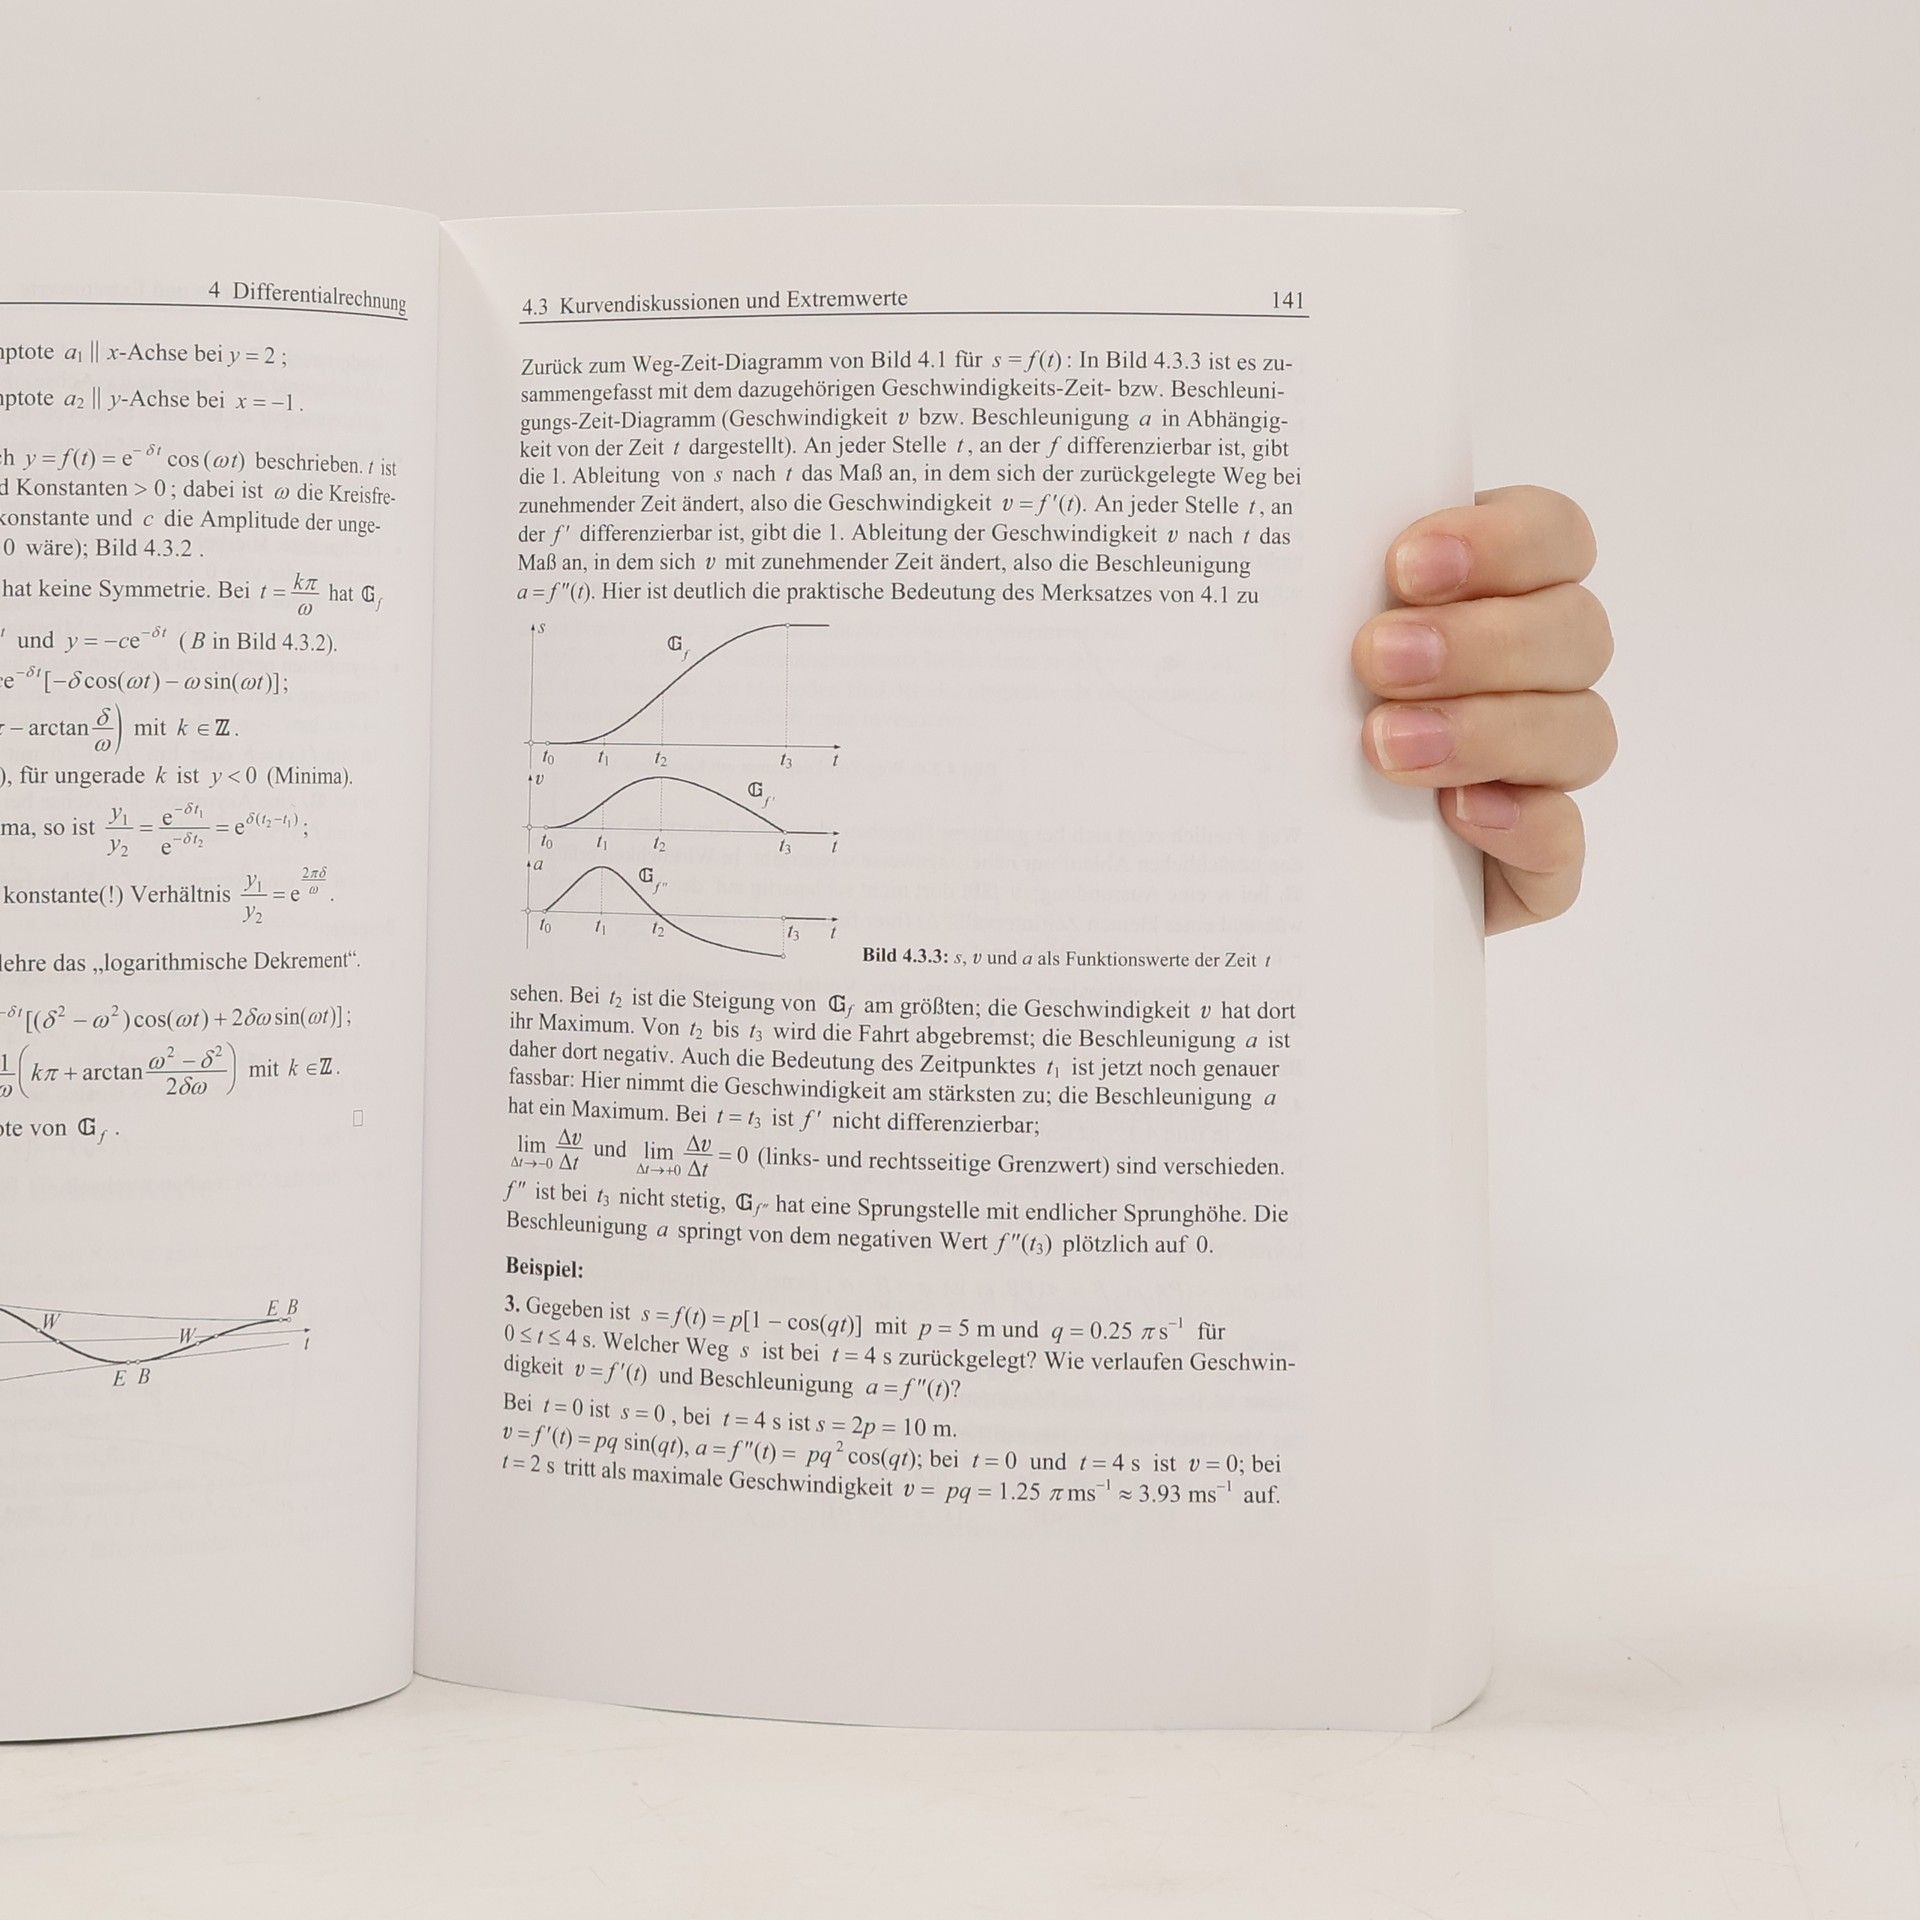 4 Differentialrechnung
mptote a₁ || x-Achse bei y = 2 ;
mptote a₂ || y-Achse bei x = –1 .
ch y = f(t) = e^(–δt) cos (ωt) beschrieben. t ist
d Konstanten > 0 ; dabei ist ω die Kreisfre-
konstante und c die Amplitude der unge-
0 wäre); Bild 4.3.2 .
hat keine Symmetrie. Bei t = kπ/ω hat 𝔾_f
und y = –ce^(–δt) ( B in Bild 4.3.2).
e^(–δt) [–δ cos(ωt) – ω sin(ωt)];
– arctan δ/ω) mit k ∈ ℤ .
), für ungerade k ist y < 0 (Minima).
ma, so ist y₁/y₂ = e^(–δt₁)/e^(–δt₂) = e^(δ(t₂–t₁)) ;
konstante(!) Verhältnis y₁/y₂ = e^(2πδ/ω) .
lehre das „logarithmische Dekrement“.
–δt [(δ² – ω²) cos(ωt) + 2δω sin(ωt)] ;
1/ω (kπ + arctan (ω² – δ²)/(2δω)) mit k ∈ ℤ .
ote von 𝔾_f .
W
W
E B
E B
t
4.3 Kurvendiskussionen und Extremwerte 141
Zurück zum Weg-Zeit-Diagramm von Bild 4.1 für s = f(t) : In Bild 4.3.3 ist es zu-
sammengefasst mit dem dazugehörigen Geschwindigkeits-Zeit- bzw. Beschleuni-
gungs-Zeit-Diagramm (Geschwindigkeit v bzw. Beschleunigung a in Abhängig-
keit von der Zeit t dargestellt). An jeder Stelle t , an der f differenzierbar ist, gibt
die 1. Ableitung von s nach t das Maß an, in dem sich der zurückgelegte Weg bei
zunehmender Zeit ändert, also die Geschwindigkeit v = f '(t). An jeder Stelle t , an
der f ' differenzierbar ist, gibt die 1. Ableitung der Geschwindigkeit v nach t das
Maß an, in dem sich v mit zunehmender Zeit ändert, also die Beschleunigung
a = f ''(t). Hier ist deutlich die praktische Bedeutung des Merksatzes von 4.1 zu
s
𝔾_f
t₀ t₁ t₂ t₃ t
v
𝔾_f'
t₀ t₁ t₂ t₃ t
a
𝔾_f''
t₀ t₁ t₂ t₃ t
Bild 4.3.3: s, v und a als Funktionswerte der Zeit t
sehen. Bei t₂ ist die Steigung von 𝔾_f am größten; die Geschwindigkeit v hat dort
ihr Maximum. Von t₂ bis t₃ wird die Fahrt abgebremst; die Beschleunigung a ist
daher dort negativ. Auch die Bedeutung des Zeitpunktes t₁ ist jetzt noch genauer
fassbar: Hier nimmt die Geschwindigkeit am stärksten zu; die Beschleunigung a
hat ein Maximum. Bei t = t₃ ist f ' nicht differenzierbar;
lim Δt→–0 Δv/Δt und lim Δt→+0 Δv/Δt = 0 (links- und rechtsseitige Grenzwert) sind verschieden.
f '' ist bei t₃ nicht stetig, 𝔾_f'' hat eine Sprungstelle mit endlicher Sprunghöhe. Die
Beschleunigung a springt von dem negativen Wert f ''(t₃) plötzlich auf 0.
Beispiel:
3. Gegeben ist s = f(t) = p[1 – cos(qt)] mit p = 5 m und q = 0.25 π s⁻¹ für
0 ≤ t ≤ 4 s. Welcher Weg s ist bei t = 4 s zurückgelegt? Wie verlaufen Geschwin-
digkeit v = f '(t) und Beschleunigung a = f ''(t)?
Bei t = 0 ist s = 0 , bei t = 4 s ist s = 2p = 10 m.
v = f '(t) = pq sin(qt), a = f ''(t) = pq² cos(qt); bei t = 0 und t = 4 s ist v = 0; bei
t = 2 s tritt als maximale Geschwindigkeit v = pq = 1.25 π ms⁻¹ ≈ 3.93 ms⁻¹ auf.